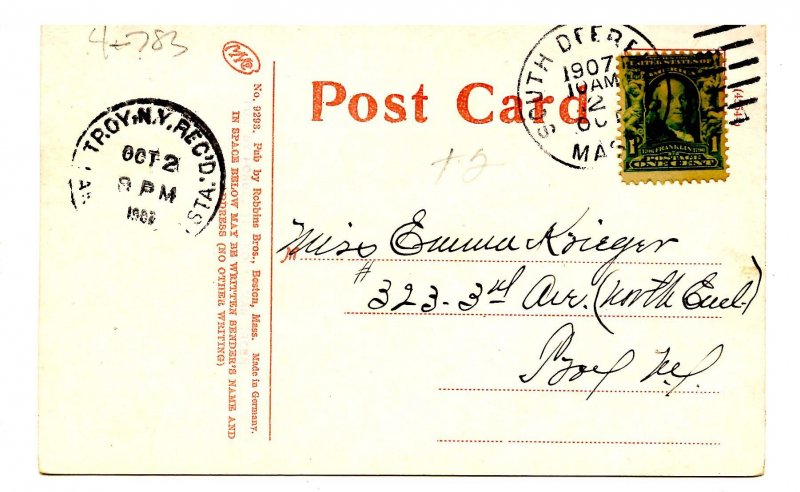 4-783
MAC
No. 9293. Pub by Robbins Bros., Boston, Mass. Made in Germany.
IN SPACE BELOW MAY BE WRITTEN SENDER'S NAME AND
ADDRESS (NO OTHER WRITING)
Post Card
SOUTH DEERF
1907
10 AM
2
OCT
MASS
UNITED STATES OF
AMERICA
1706 FRANKLIN 1790
1 POSTAGE 1
ONE CENT
TROY, N.Y. REC'D.
STA.
OCT 2
8 PM
190
Miss Emma Krieger
# 323-3rd Ave. (North End.)
Troy N.Y.